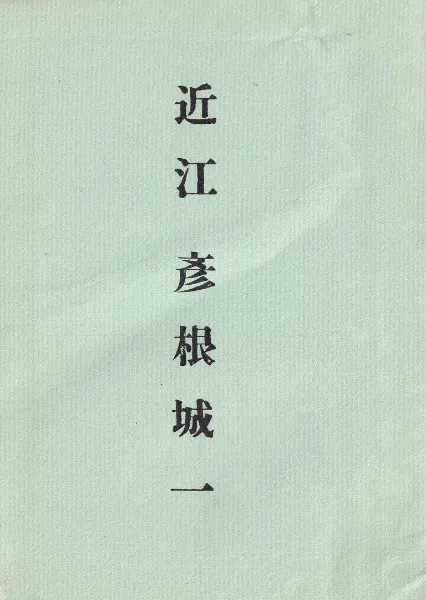 近江 彦根城 一